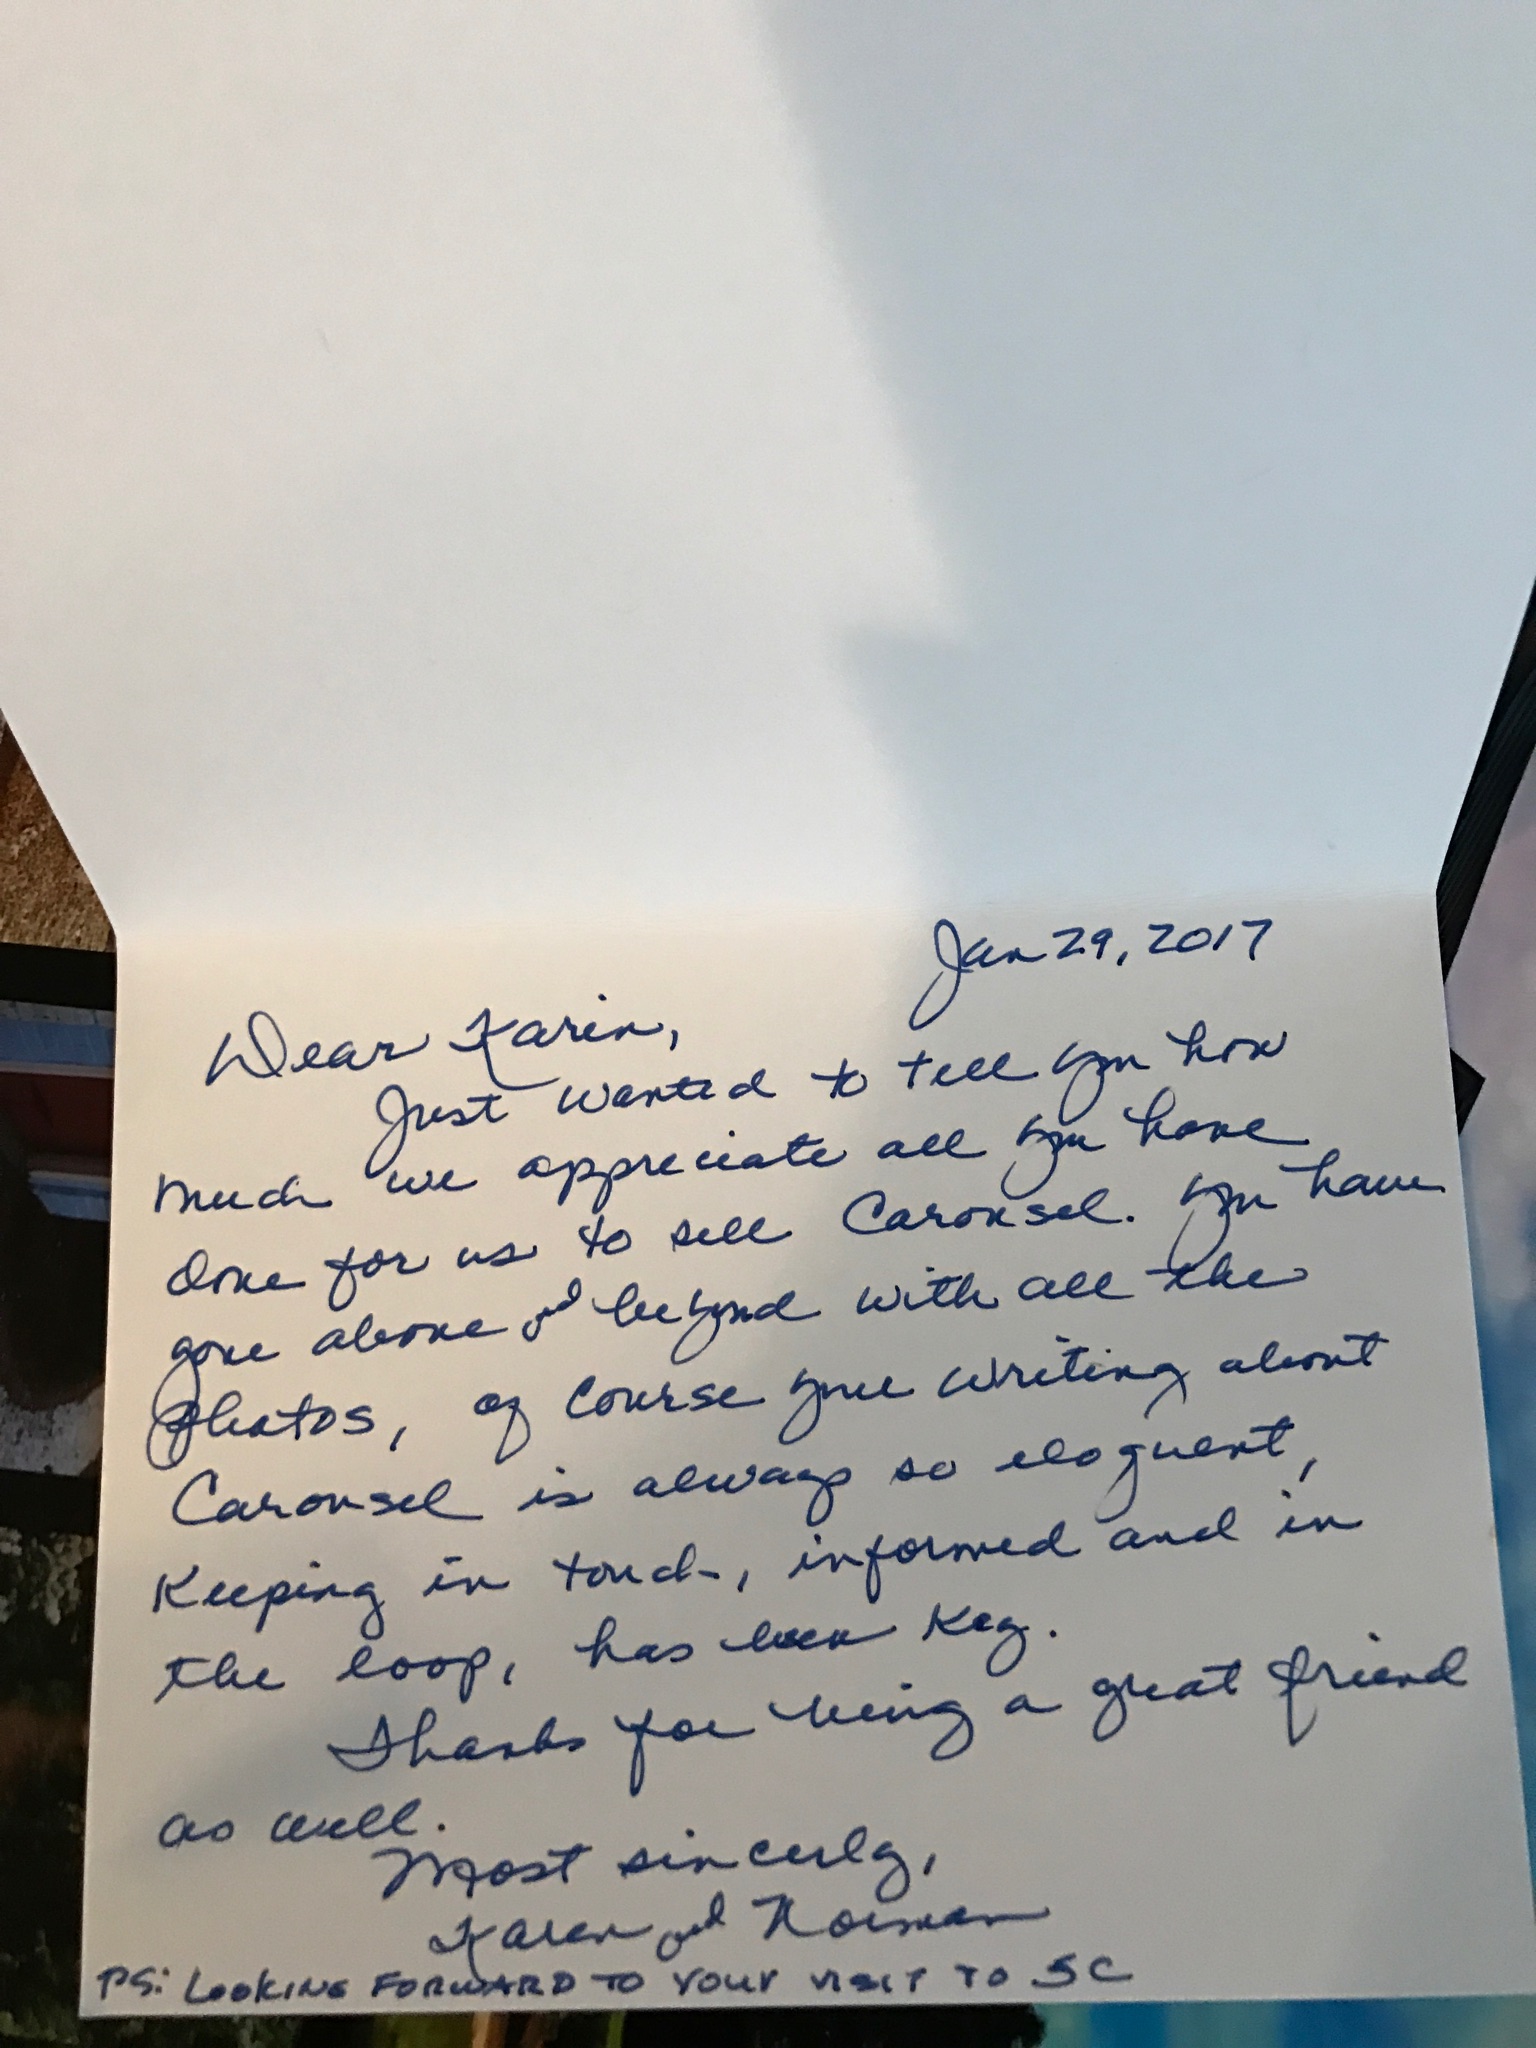 Jan 29, 2017
Dear Karin,
Just wanted to tell you how
much we appreciate all you have
done for us to sell Carousel. You have
gone above and beyond with all the
photos, of course your writing about
Carousel is always so eloquent,
Keeping in touch, informed and in
the loop, has been key.
Thanks for being a great friend
as well.
Most sincerly,
Karen and Norman
PS: LOOKING FORWARD TO YOUR VISIT TO SC